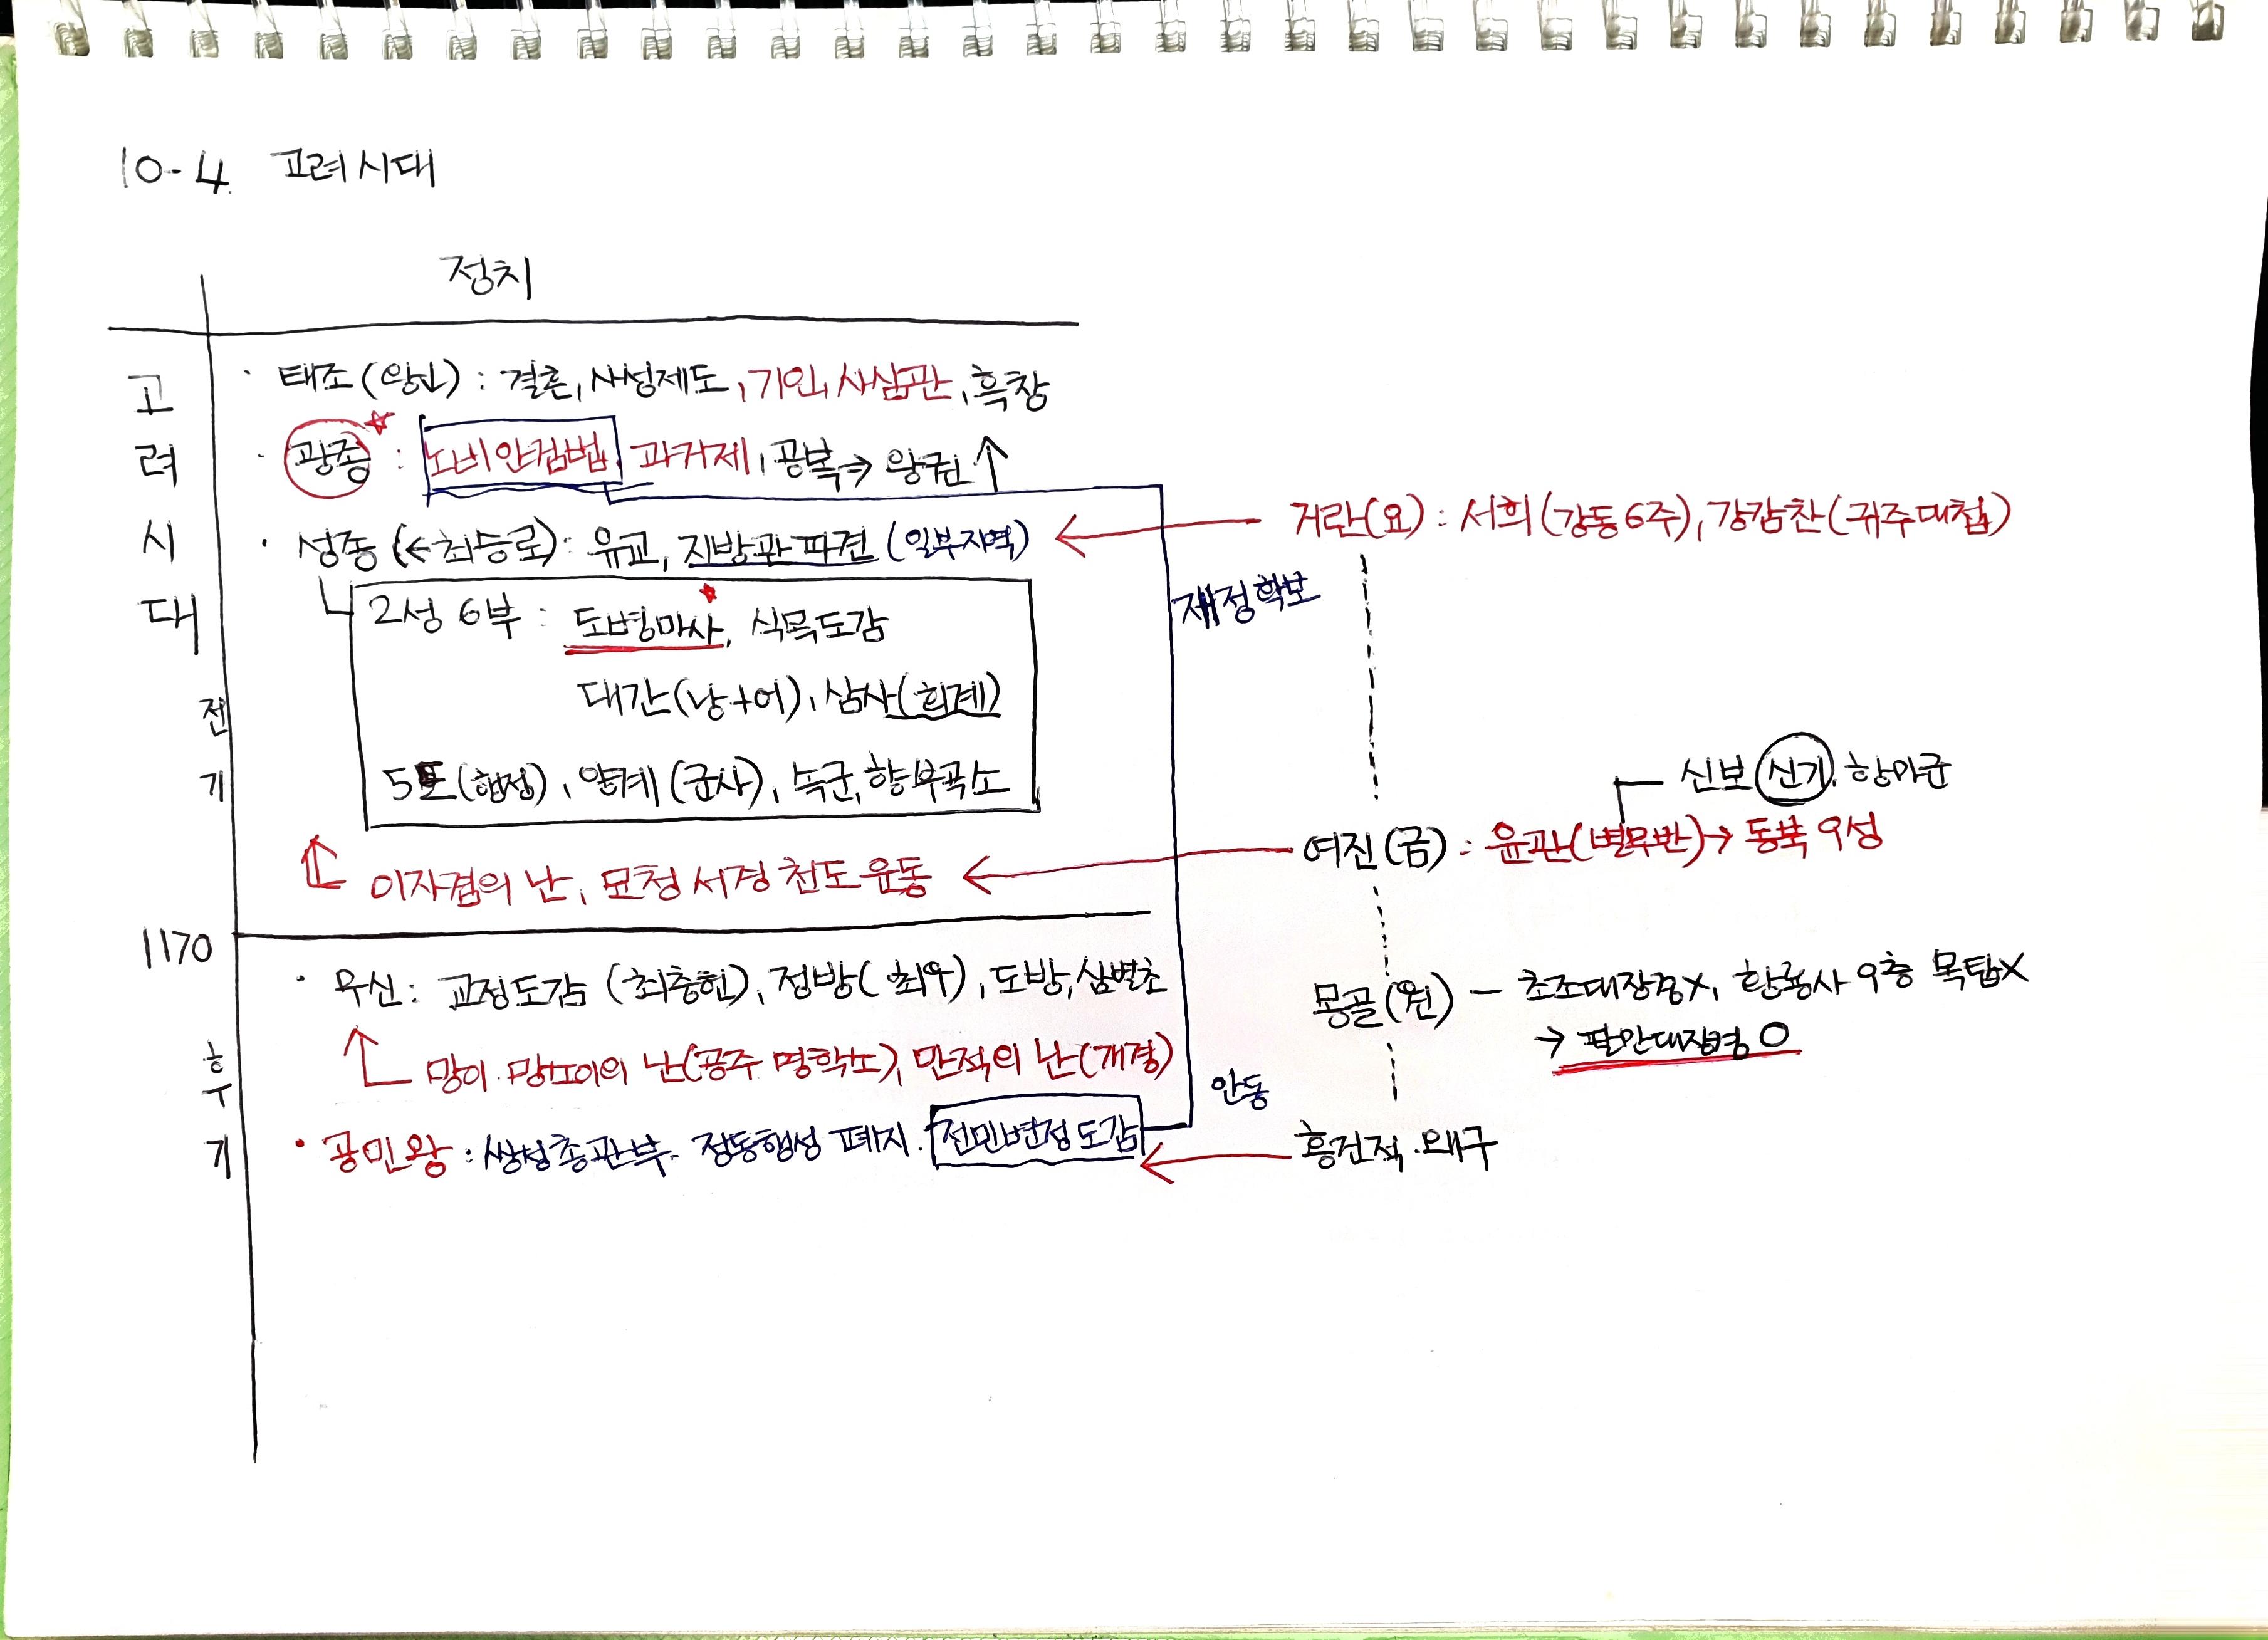 10-4. 고려시대
정치
고려시대 전기
· 태조(왕건) : 결혼, 사성제도, 기인, 사심관, 흑창
· 광종 : 노비안검법, 과거제, 공복 ⇒ 왕권 ↑
· 성종 (← 최승로) : 유교, 지방관 파견 (일부지역)
거란(요) : 서희(강동 6주), 강감찬(귀주대첩)
재정확보
2성 6부 : 도병마사, 식목도감
대간(낭+어), 삼사(회계)
5도(행정), 양계(군사), 속군, 향부곡소
신보 신기 항마군
여진(금) : 윤관(별무반) → 동북 9성
이자겸의 난, 묘청 서경 천도 운동
1170
후기
· 무신 : 교정도감 (최충헌), 정방(최우), 도방, 삼별초
몽골(원) - 초조대장경X, 황룡사 9층 목탑X
→ 팔만대장경 O
망이·망소이의 난(공주 명학소), 만적의 난(개경)
안동
· 공민왕 : 쌍성총관부· 정동행성 폐지· 전민변정도감
홍건적·왜구